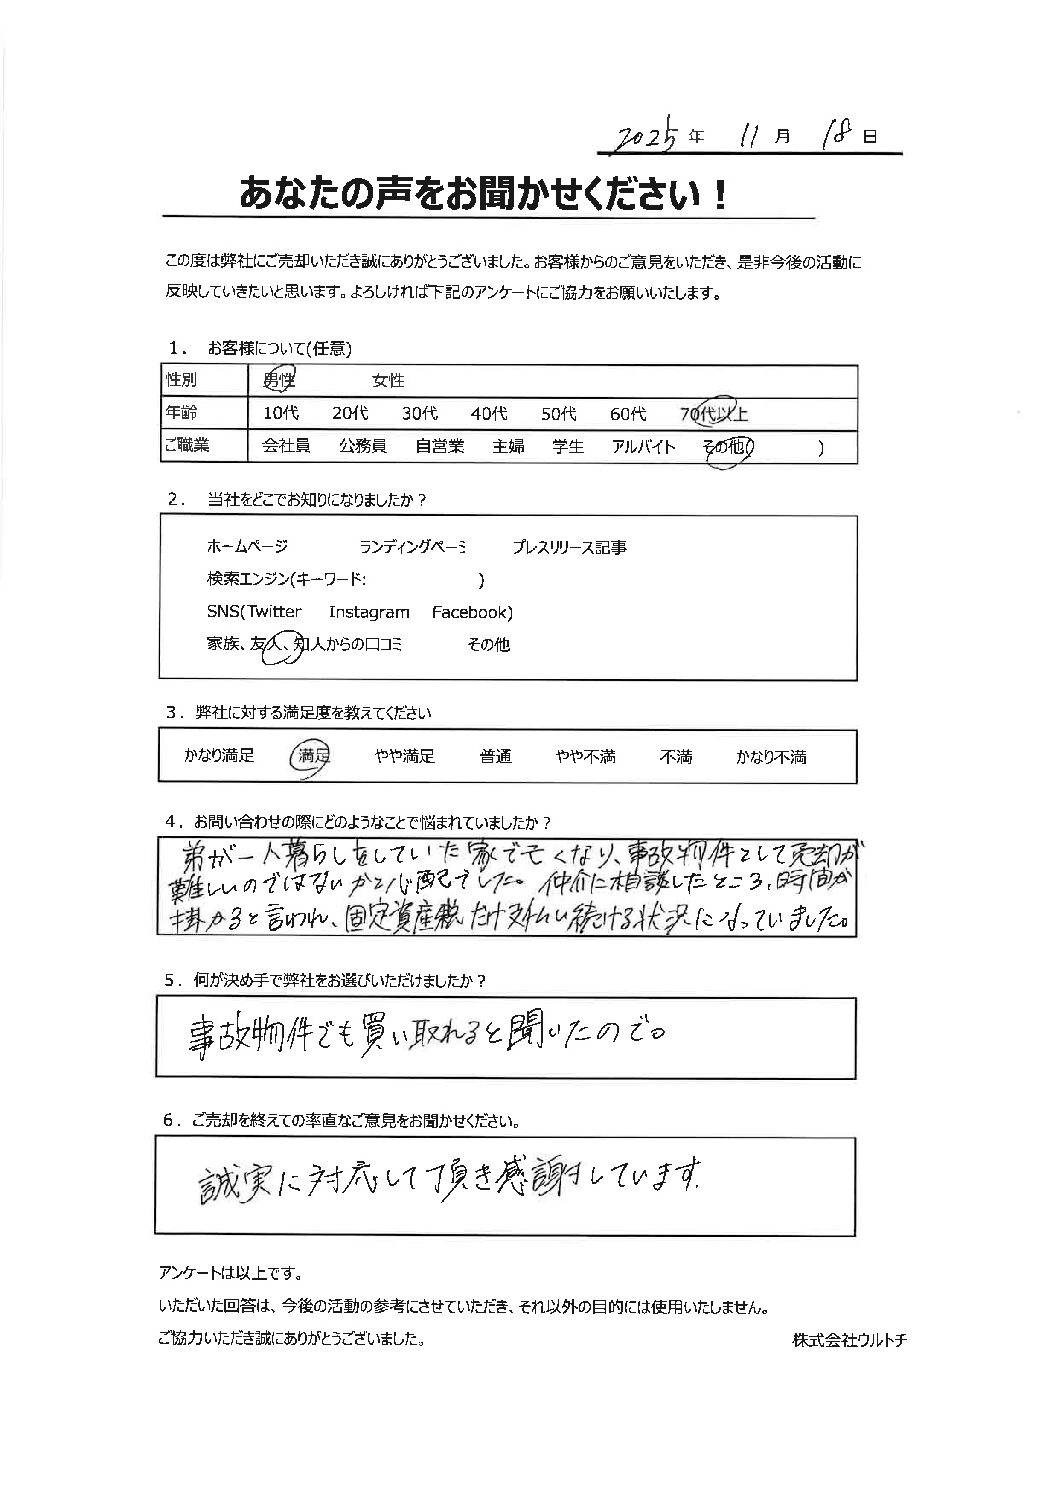 2025年 11月 18日
あなたの声をお聞かせください！
この度は弊社にご売却いただき誠にありがとうございました。お客様からのご意見をいただき、是非今後の活動に
反映していきたいと思います。よろしければ下記のアンケートにご協力をお願いいたします。
1． お客様について(任意)
性別 男性 女性
年齢 10代 20代 30代 40代 50代 60代 70代以上
ご職業 会社員 公務員 自営業 主婦 学生 アルバイト その他( )
2． 当社をどこでお知りになりましたか？
ホームページ ランディングページ プレスリリース記事
検索エンジン(キーワード: )
SNS(Twitter Instagram Facebook)
家族、友人、知人からの口コミ その他
3．弊社に対する満足度を教えてください
かなり満足 満足 やや満足 普通 やや不満 不満 かなり不満
4．お問い合わせの際にどのようなことで悩まれていましたか？
弟が一人暮らしをしていた家で亡くなり、事故物件として売却が
難しいのではないかと心配でした。仲介に相談したところ、時間が
掛かると言われ、固定資産税だけ支払い続ける状況になっていました。
5．何が決め手で弊社をお選びいただけましたか？
事故物件でも買い取れると聞いたので。
6．ご売却を終えての率直なご意見をお聞かせください。
誠実に対応して頂き感謝しています.
アンケートは以上です。
いただいた回答は、今後の活動の参考にさせていただき、それ以外の目的には使用いたしません。
ご協力いただき誠にありがとうございました。 株式会社ウルトチ